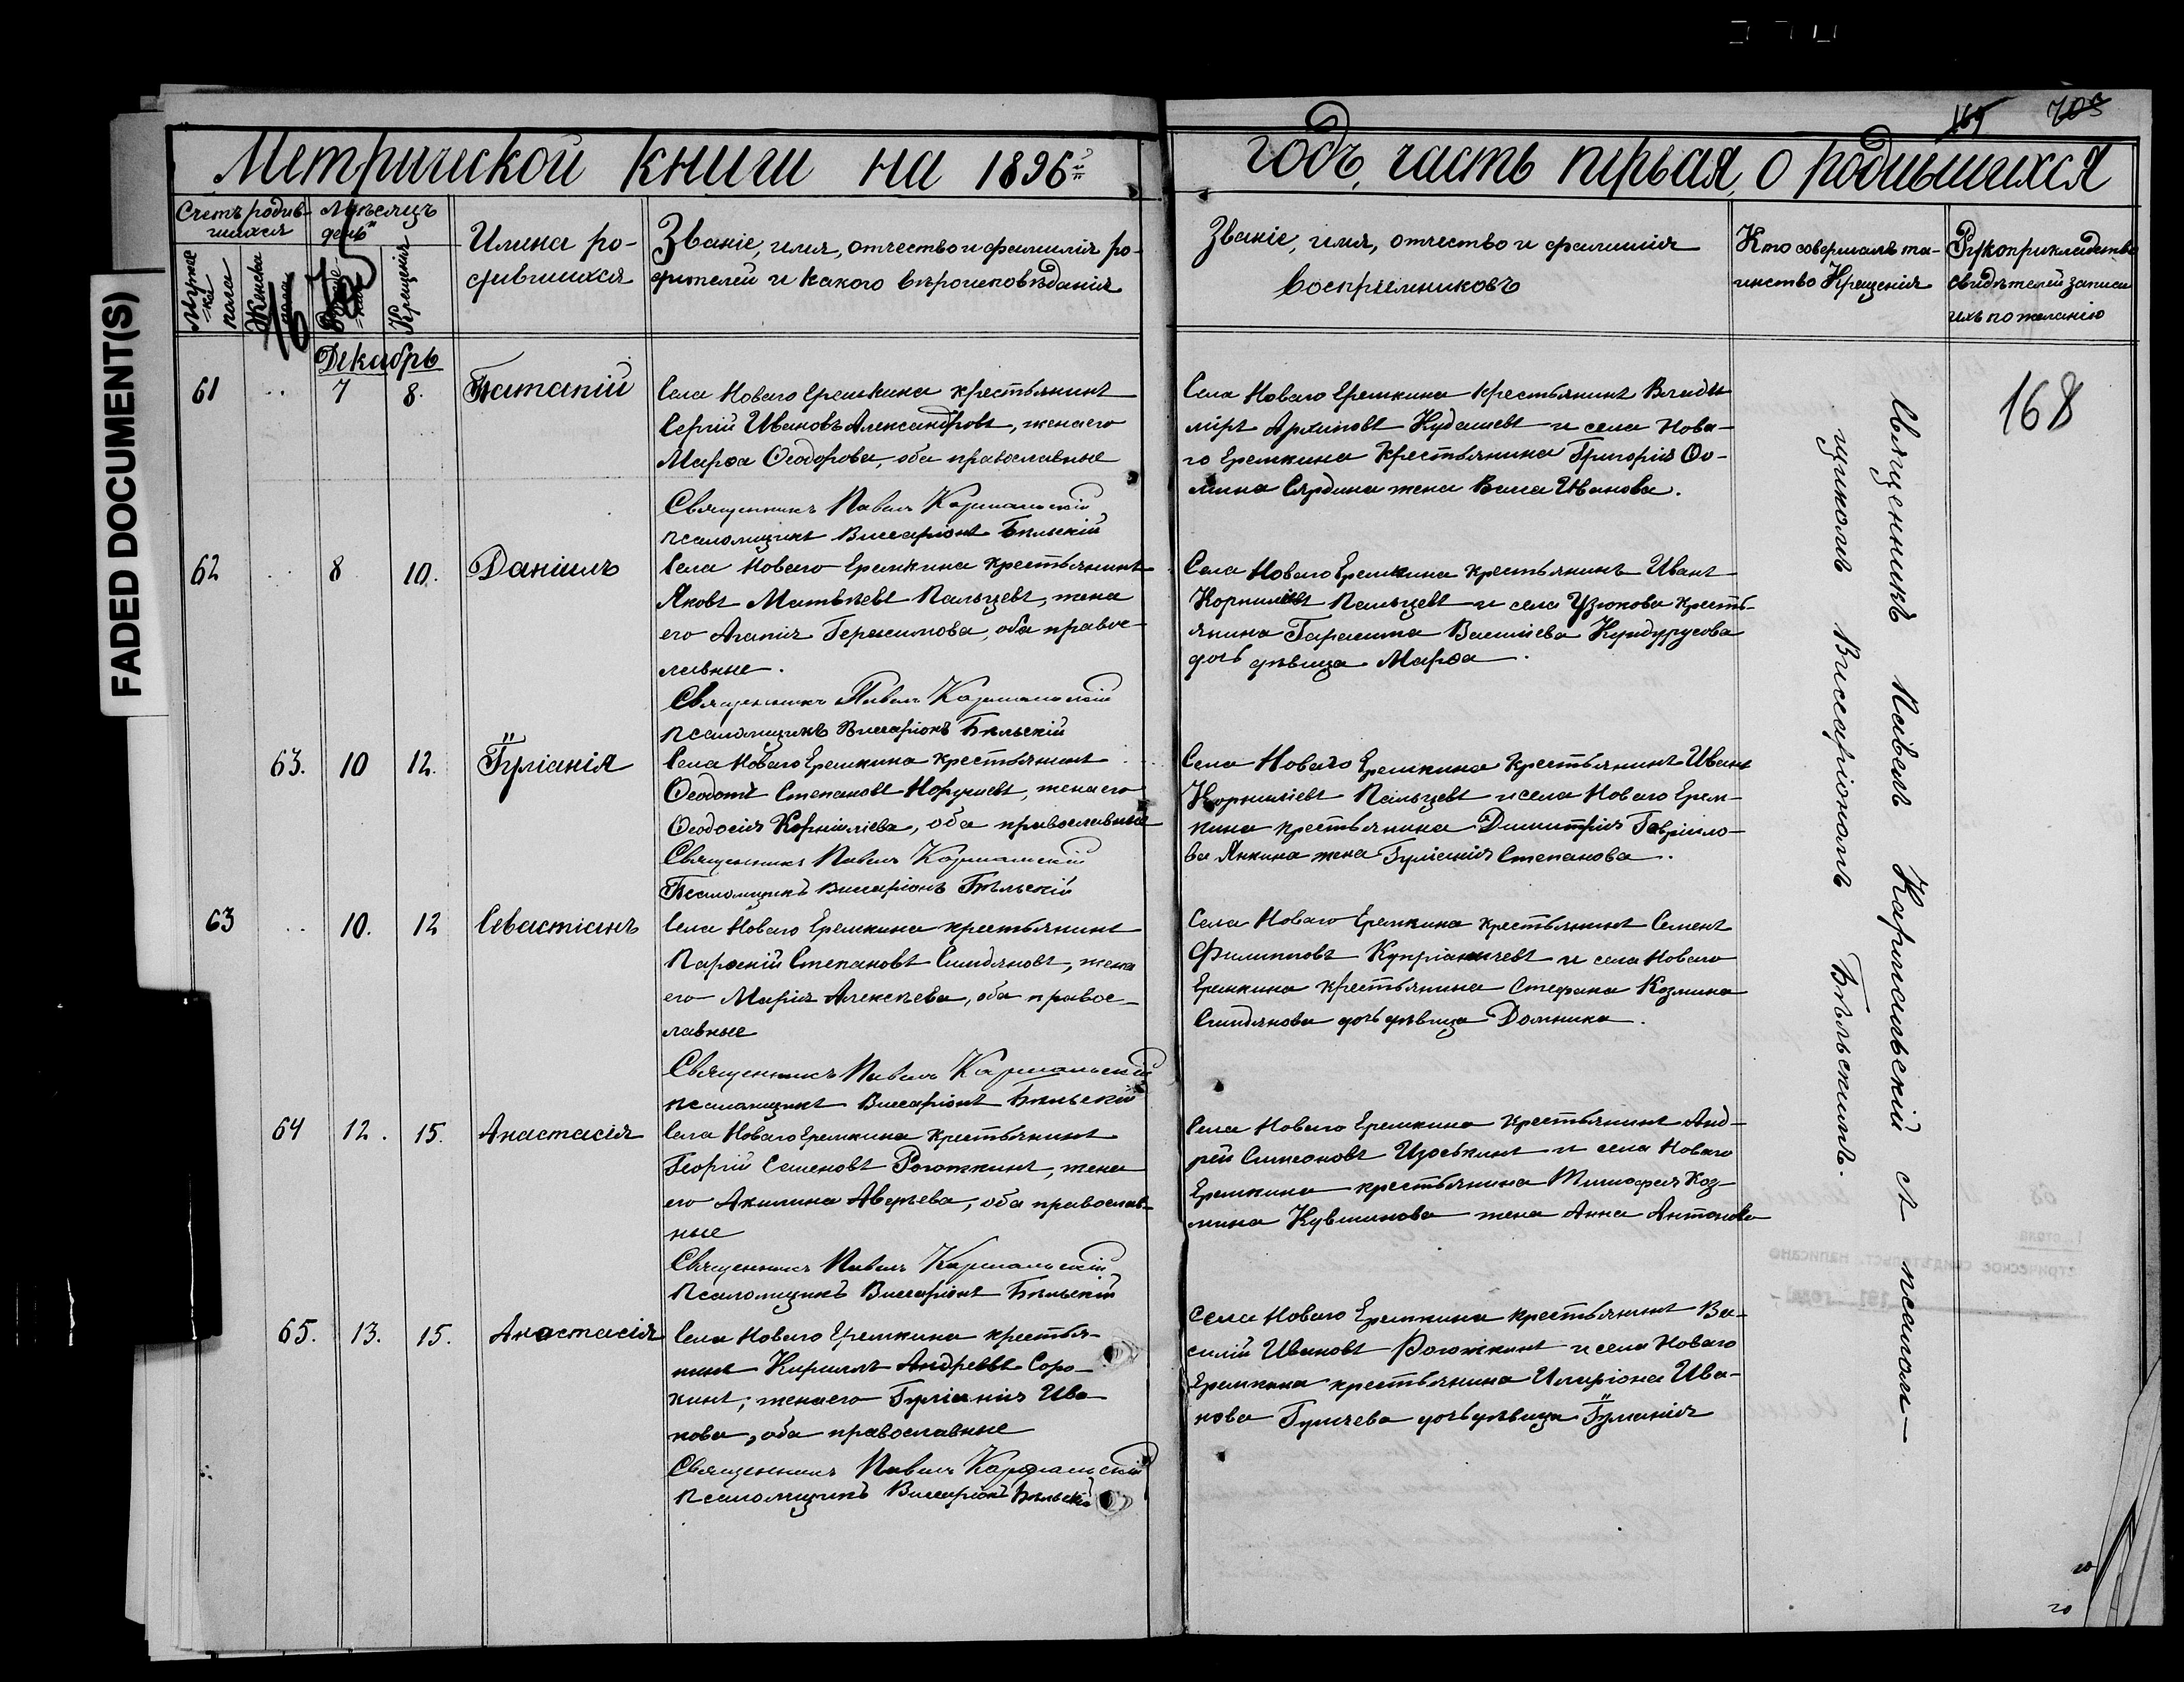 FADED DOCUMENT(S)
Метрической книги на 1896й
годъ, часть первая, о родившихся
Счетъ родив-
шихся
Мѣсяцъ
день
Мужес
-ка
пола
Женска
пола
Крещенія
Имена ро-
дившихся
Званіе, имя, отчество и фамилія ро-
дителей и какого вѣроисповѣданія
Званіе, имя, отчество и фамилія
воспріемниковъ
Кто совершалъ та-
инство Крещенія
Рукоприкладство
свидѣтелей записи
ихъ по желанію
168
Декабрь
61 .. 7 8. Патапій
Села Новаго Еремкина крестьянинъ
Сергій Ивановъ Александровъ, жена его
Марѳа Ѳеодорова, оба православные
Священникъ Павелъ Кармальскій
псаломщикъ Виссаріонъ Бѣльскій
Села Новаго Еремкина крестьянинъ Влади
міръ Архиповъ Кудашевъ и села Нова-
го Еремкина крестьянина Григорія Ѳо-
мина Сярдина жена Васса Иванова.
62 .. 8 10. Даніилъ
Села Новаго Еремкина крестьянинъ
Яковъ Матвѣевъ Пальцевъ, жена
его Агапія Герасимова, оба правос-
лавные.
Священникъ Павелъ Кармальскій
псаломщикъ Виссаріонъ Бѣльскій
Села Новаго Еремкина крестьянинъ Иванъ
Корниліевъ Пальцевъ и села Узюкова кресть-
янина Герасима Василіева Кундурусова
дочь дѣвица Марѳа.
63. 10 12. Іуліанія
Села Новаго Еремкина крестьянинъ
Ѳеодотъ Степановъ Норучевъ, жена его
Ѳеодосія Корниліева, оба православные
Священникъ Павелъ Кармальскій
Псаломщикъ Виссаріонъ Бѣльскій
Села Новаго Еремкина крестьянинъ Иванъ
Корниліевъ Пальцевъ и села Новаго Ерем-
кина крестьянина Димитрія Гавріило-
ва Янкина жена Іуліанія Степанова.
63 .. 10. 12 Севастіанъ
Села Новаго Еремкина крестьянинъ
Парѳеній Степановъ Симдяновъ, жена
его Марія Алексѣева, оба правос-
лавные
Священникъ Павелъ Кармальскій
псаломщикъ Виссаріонъ Бѣльскій
Села Новаго Еремкина крестьянинъ Семенъ
Филипповъ Купріяничевъ и села Новаго
Еремкина крестьянина Стефана Козмина
Симдянова дочь дѣвица Домника.
64 12. 15. Анастасія
Села Новаго Еремкина крестьянинъ
Георгій Семеновъ Рогожкинъ, жена
его Акилина Авдѣева, оба православ-
ные
Священникъ Павелъ Кармальскій
Псаломщикъ Виссаріонъ Бѣльскій
Села Новаго Еремкина крестьянинъ Анд-
рей Симеоновъ Изоськинъ и села Новаго
Еремкина крестьянина Тимоѳея Коз-
мина Кувшинова жена Анна Антонова
65. 13. 15. Анастасія
Села Новаго Еремкина крестья-
нинъ Кириллъ Андреевъ Соро-
кинъ, жена его Іуліанія Ива-
нова, оба православные
Священникъ Павелъ Кармальскій
псаломщикъ Виссаріонъ Бѣльскій
Села Новаго Еремкина крестьянинъ Ва-
силій Ивановъ Рогожкинъ и села Новаго
Еремкина крестьянина Иларіона Ива-
нова Гуричева дочь дѣвица Іуліанія
Священникъ Павелъ Кармальскій съ псалом-
щикомъ Виссаріономъ Бѣльскимъ.